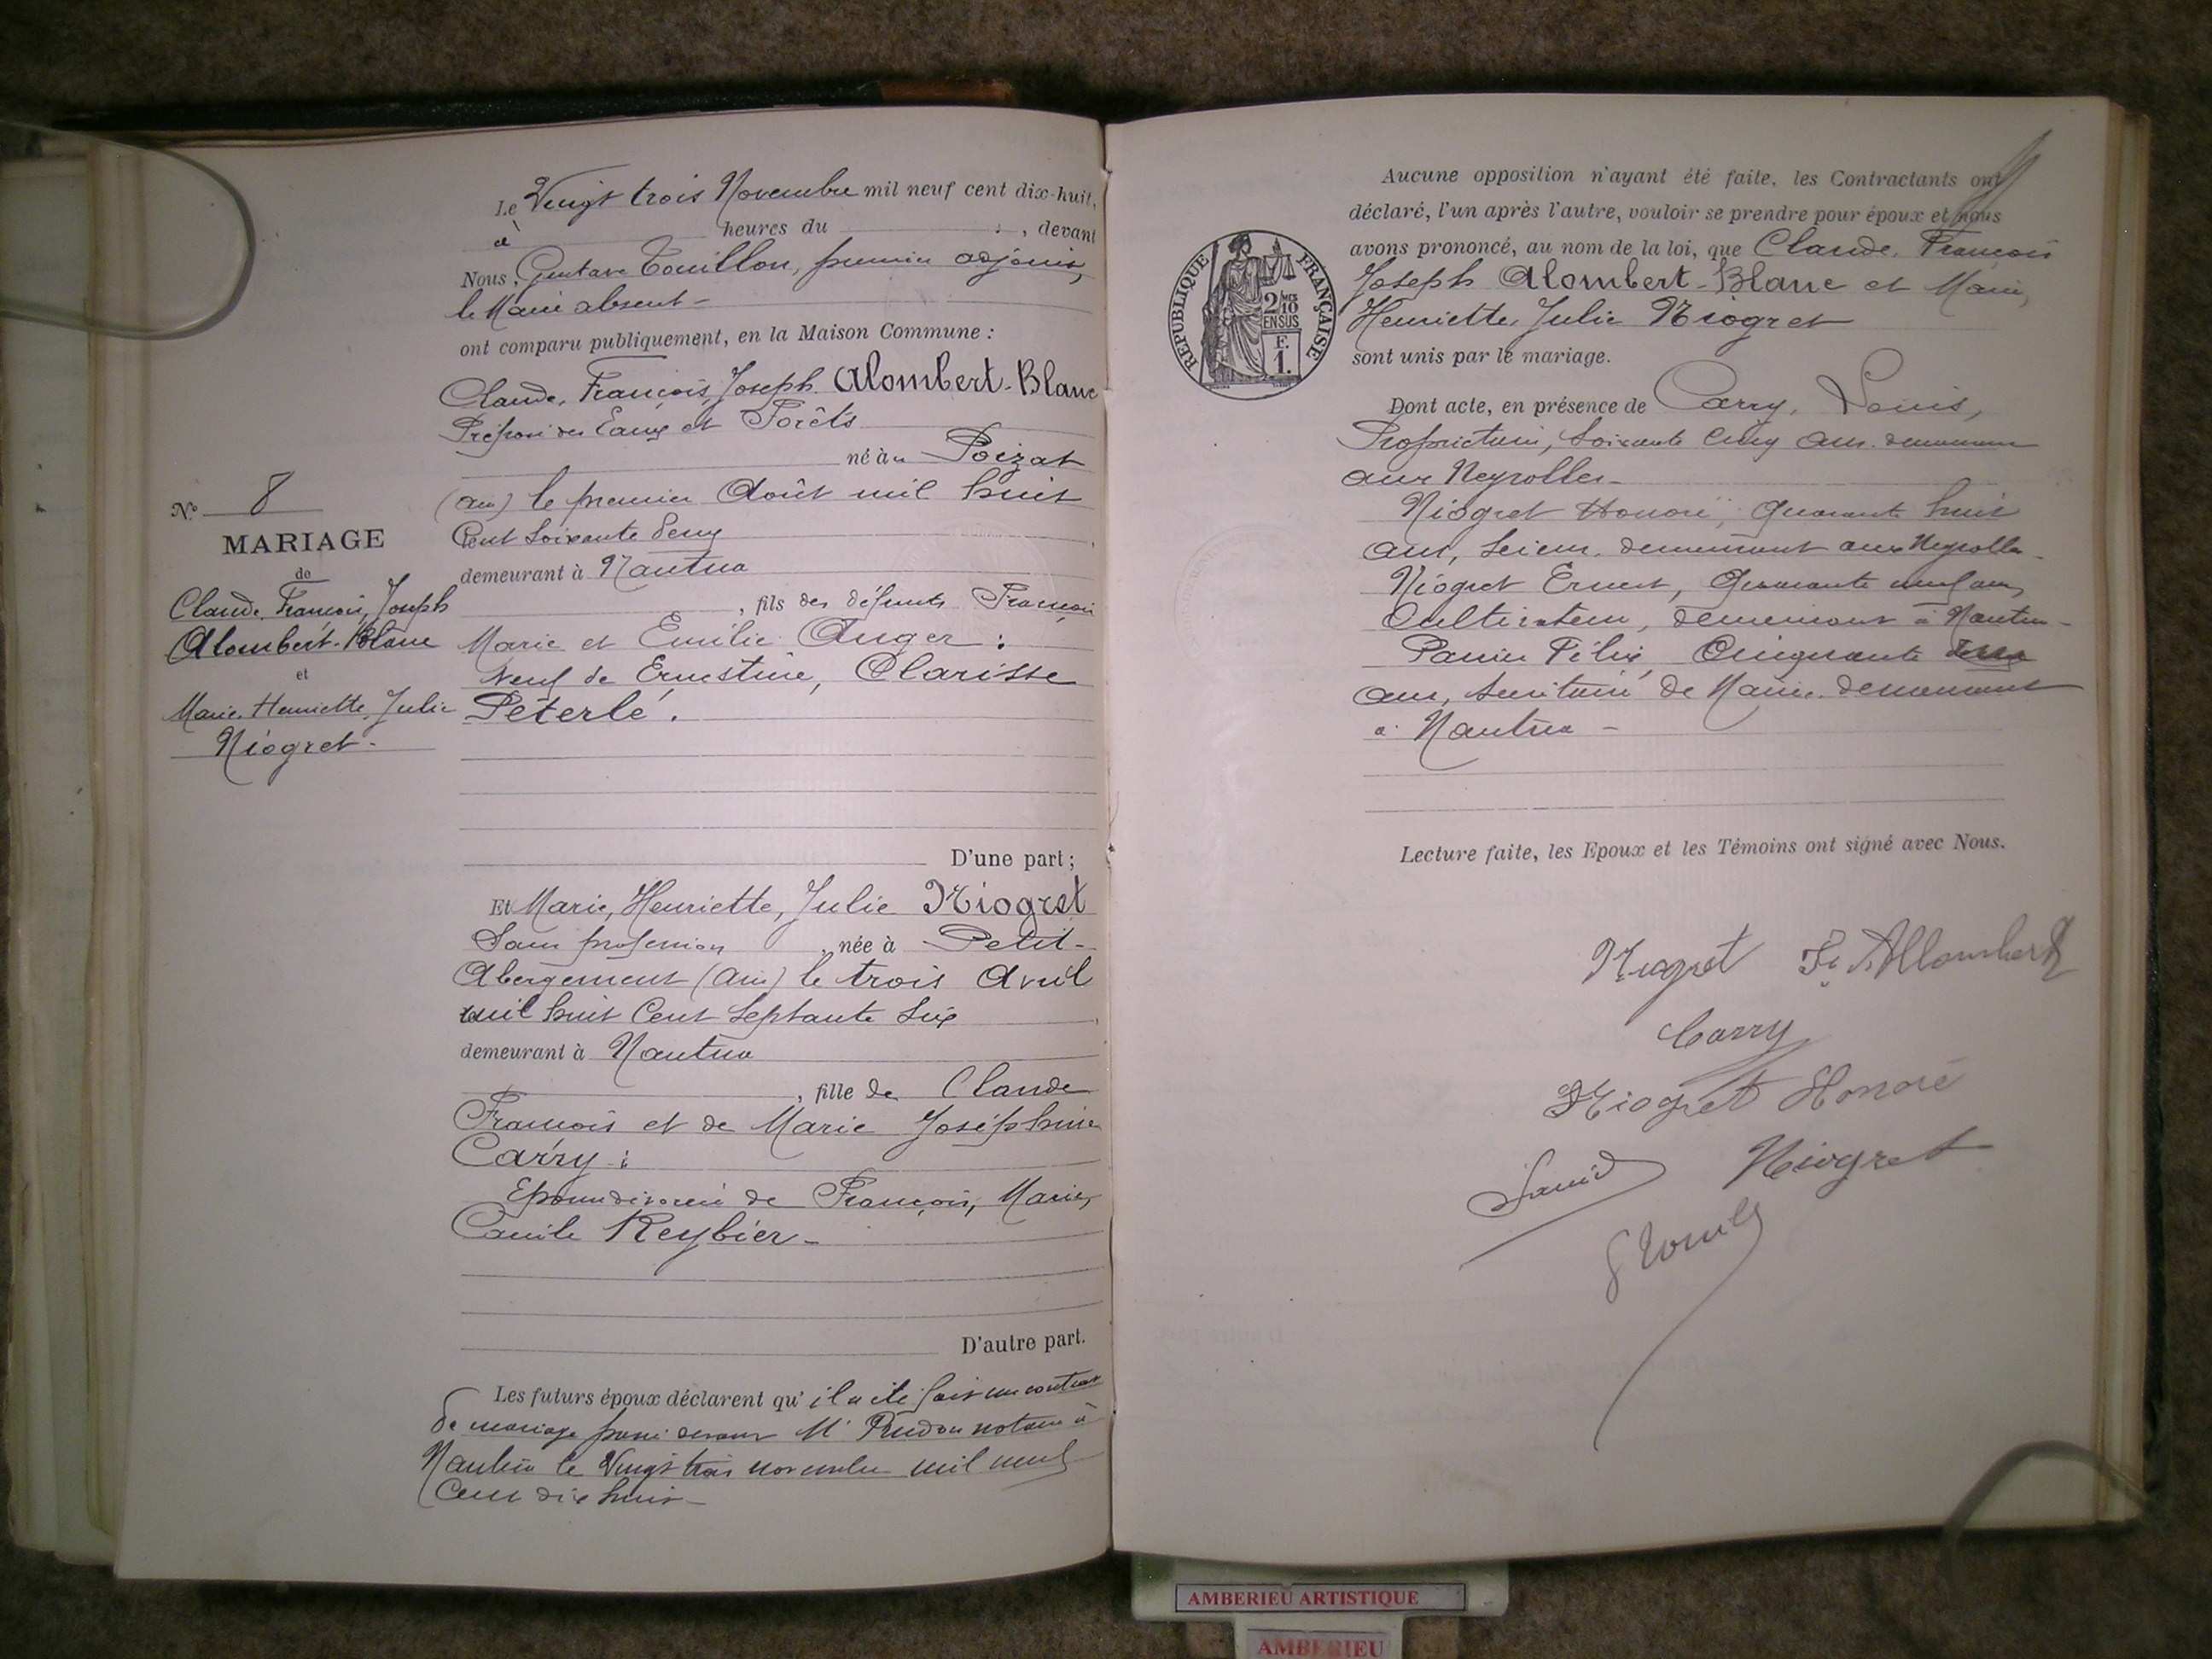 Le Vingt trois Novembre mil neuf cent dix-huit,
à heures du , devant
Nous, Gustave Touillon, premier adjoint,
le Maire absent -
ont comparu publiquement, en la Maison Commune :
Claude, François, Joseph Alombert-Blanc
Préposé des Eaux et Forêts
né au Poizat
(Ain) le premier Août mil huit
Cent soixante deux
demeurant à Nantua
, fils des défunts François
Marie et Emilie Auger :
Veuf de Ernestine, Clarisse
Péterlé.
D'une part ;
N° 8
MARIAGE
de
Claude, François, Joseph
Alombert-Blanc
et
Marie, Henriette, Julie
Niogret -
Et Marie, Henriette, Julie Niogret
Sans profession , née à Petit-
Abergement (Ain) le trois Avril
mil huit Cent septante six
demeurant à Nantua
, fille de Claude
François et de Marie Joséphine
Carry :
Epouse divorcée de François, Marie,
Camile Reybier -
D'autre part.
Les futurs époux déclarent qu'il a été fait un contrat
de mariage passé devant Me Prudon notaire à
Nantua le Vingt trois novembre mil neuf
Cent dix huit -
Aucune opposition n'ayant été faite, les Contractants ont
déclaré, l'un après l'autre, vouloir se prendre pour époux et nous
avons prononcé, au nom de la loi, que Claude, François
Joseph Alombert-Blanc et Marie,
Henriette, Julie Niogret
sont unis par le mariage.
RÉPUBLIQUE FRANÇAISE
2 MES
10
EN SUS
F.
1.
Dont acte, en présence de Carry, Louis,
Propriétaire, soixante cinq ans demeurant
aux Neyrolles -
Niogret Honoré, Quarante huit
ans, scieur, demeurant aux Neyrolles -
Niogret Ernest, Quarante neuf ans,
Cultivateur, demeurant à Nantua -
Félix, Cinquante
ans, secrétaire de Mairie demeurant
à Nantua -
Lecture faite, les Epoux et les Témoins ont signé avec Nous.
Niogret F. Allombert
Carry
Niogret Honoré
Niogret
AMBERIEU ARTISTIQUE
AMBERIEU